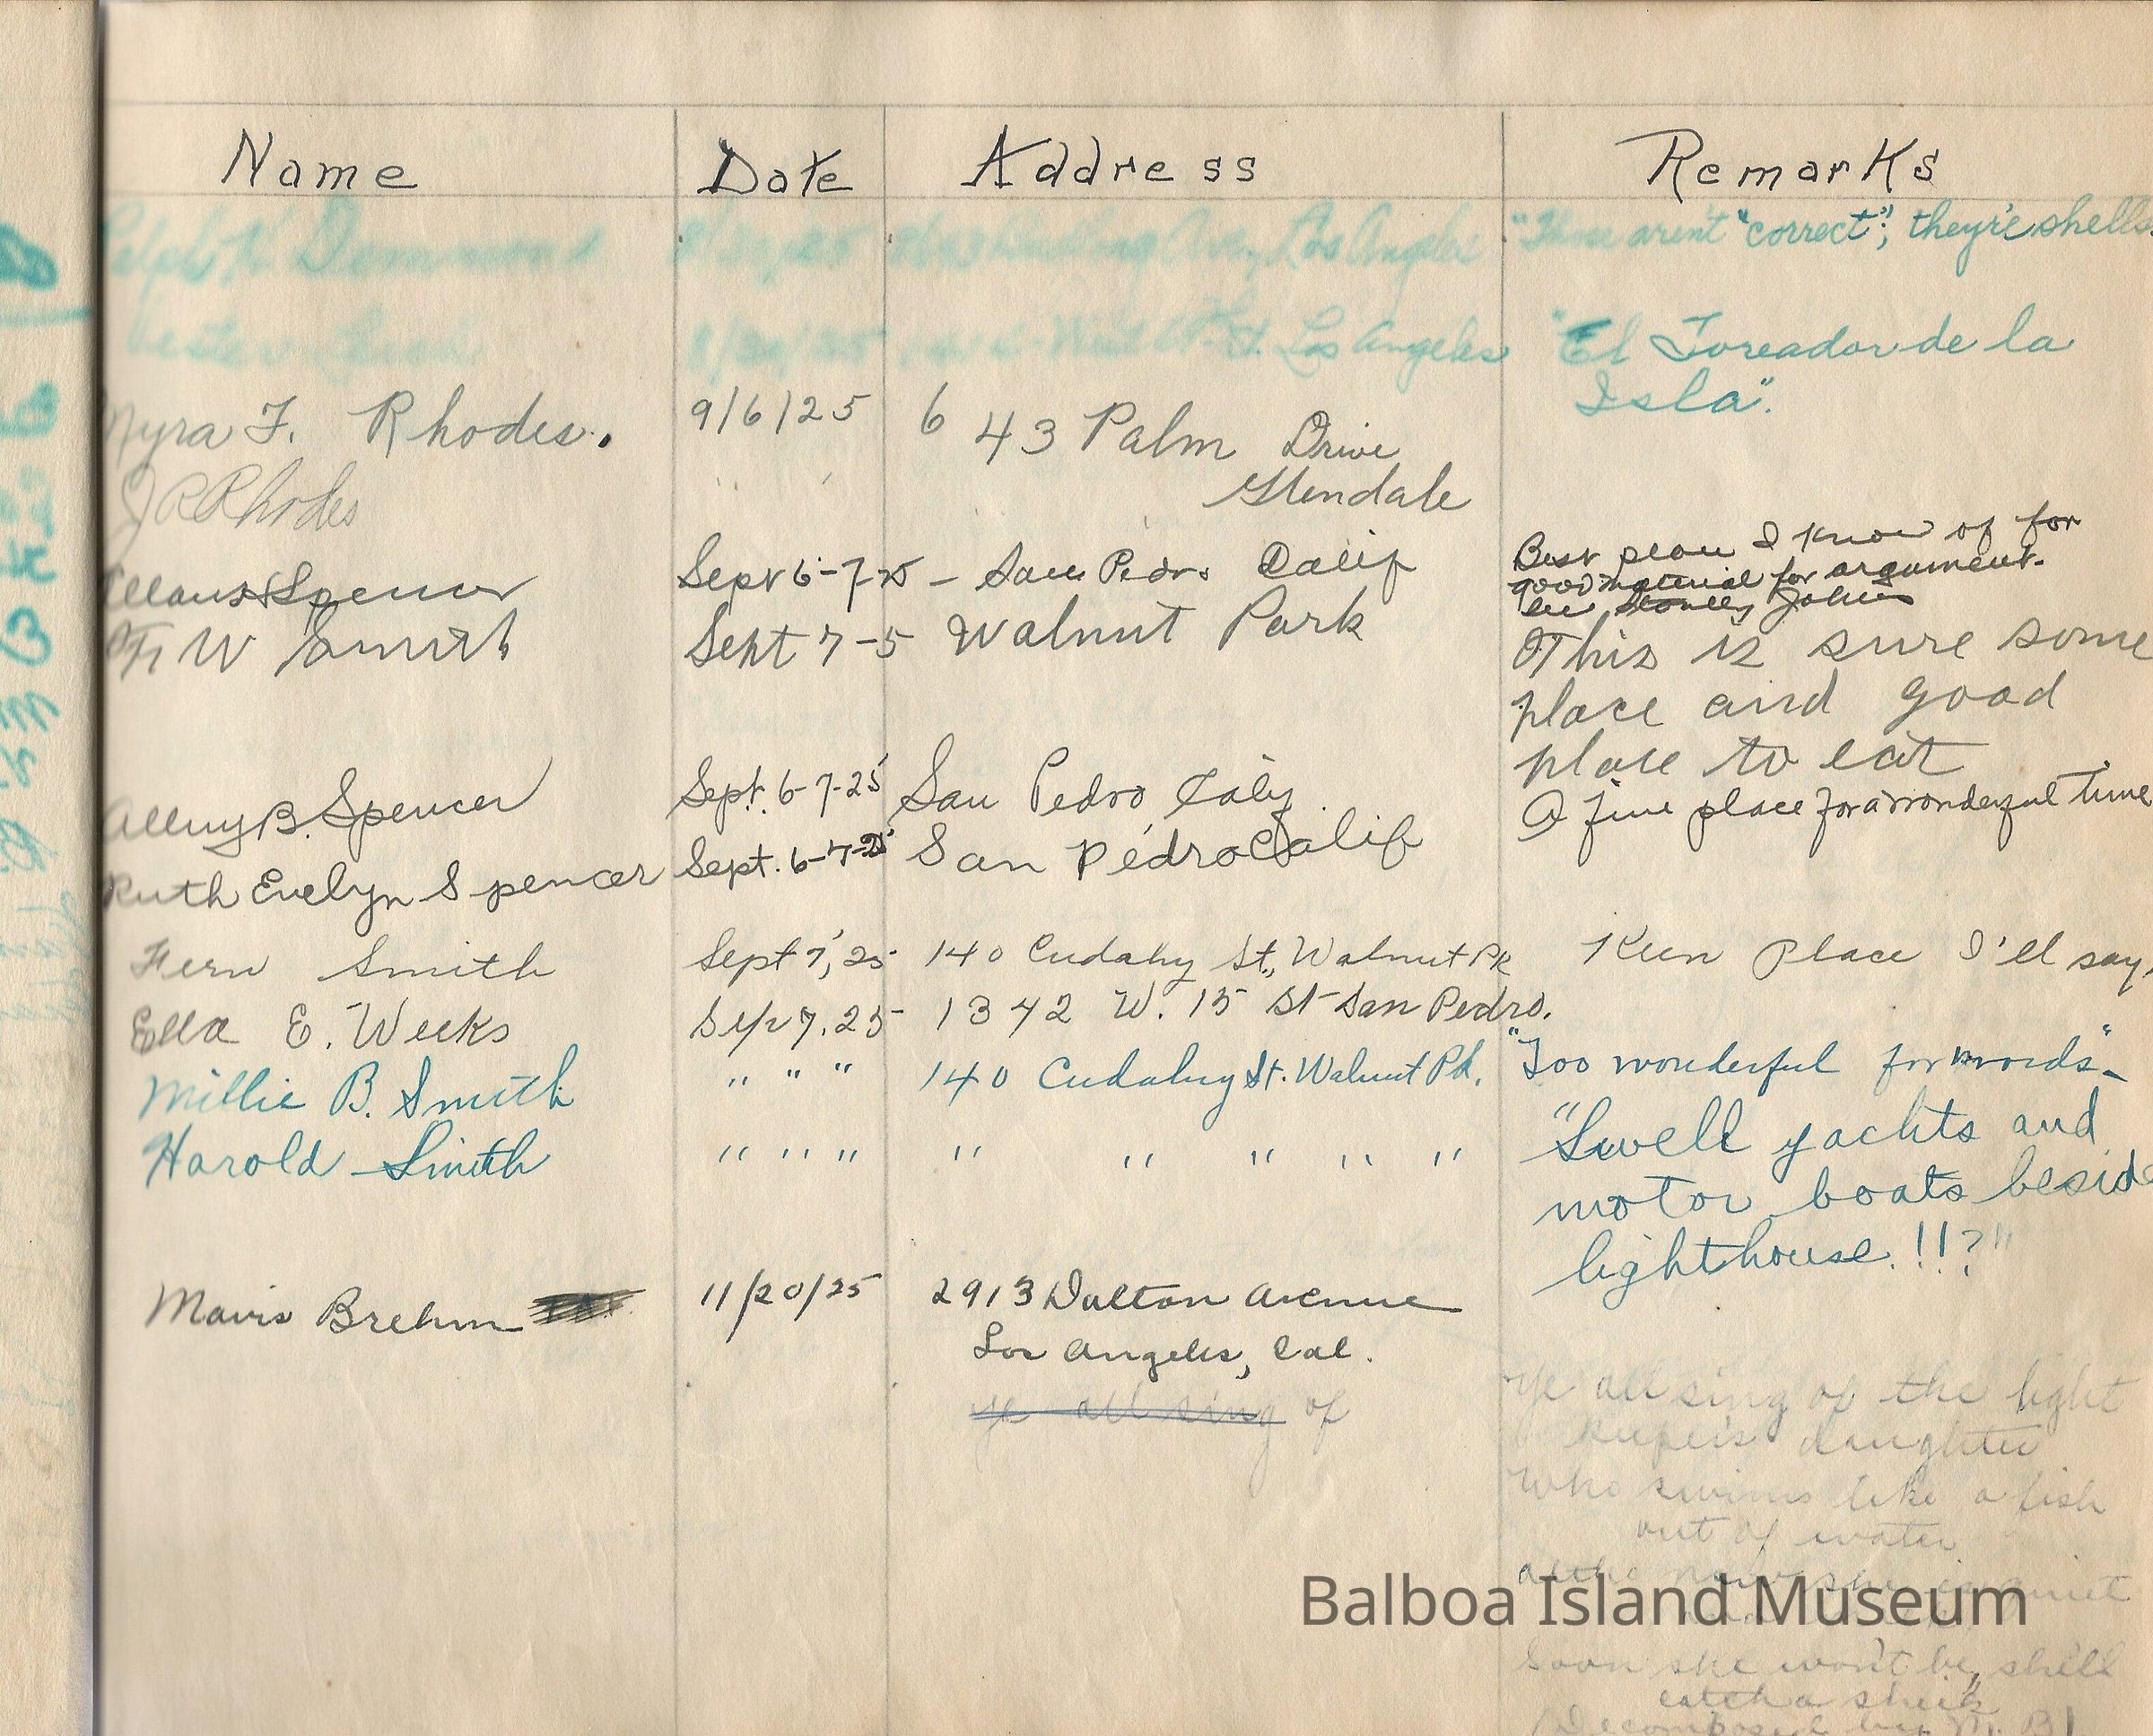 Name Date Address Remarks
Los Angeles "These aren't "correct"; they're shells.
Los Angeles "El Toreador de la
Isla".
Myra F. Rhodes. 9/6/25 643 Palm Drive
J R Rhodes " " Glendale
Spencer Sept 6-7-25 - San Pedro Calif Best place I know of for
good material for argument.
see Stanley John
F. W Smith Sept 7-5 Walnut Park This is sure some
place and good
place to eat
B. Spencer Sept. 6-7-25 San Pedro Calif. A fine place for a wonderful time
Ruth Evelyn Spencer Sept. 6-7-25 San Pedro Calif
Fern Smith Sept 7, 25 140 Cudahy St., Walnut Pk Keen Place I'll say,
Ella E. Weeks Sep 7. 25 1342 W. 15 St San Pedro.
Millie B. Smith " " " 140 Cudahy St. Walnut Pk. "Too wonderful for words"-
Harold Smith " " " " " " " " "Swell yachts and
motor boats beside
lighthouse.!!?"
Mavis Brehm 11/20/25 2913 Dalton Avenue
Los Angeles, Cal.
ye all sing of
Ye all sing of the light
keeper's daughter
Who swims like a fish
out of water
Balboa Island Museum
Soon she won't be, she'll
catch a sheik
(Decomposed by M. B)